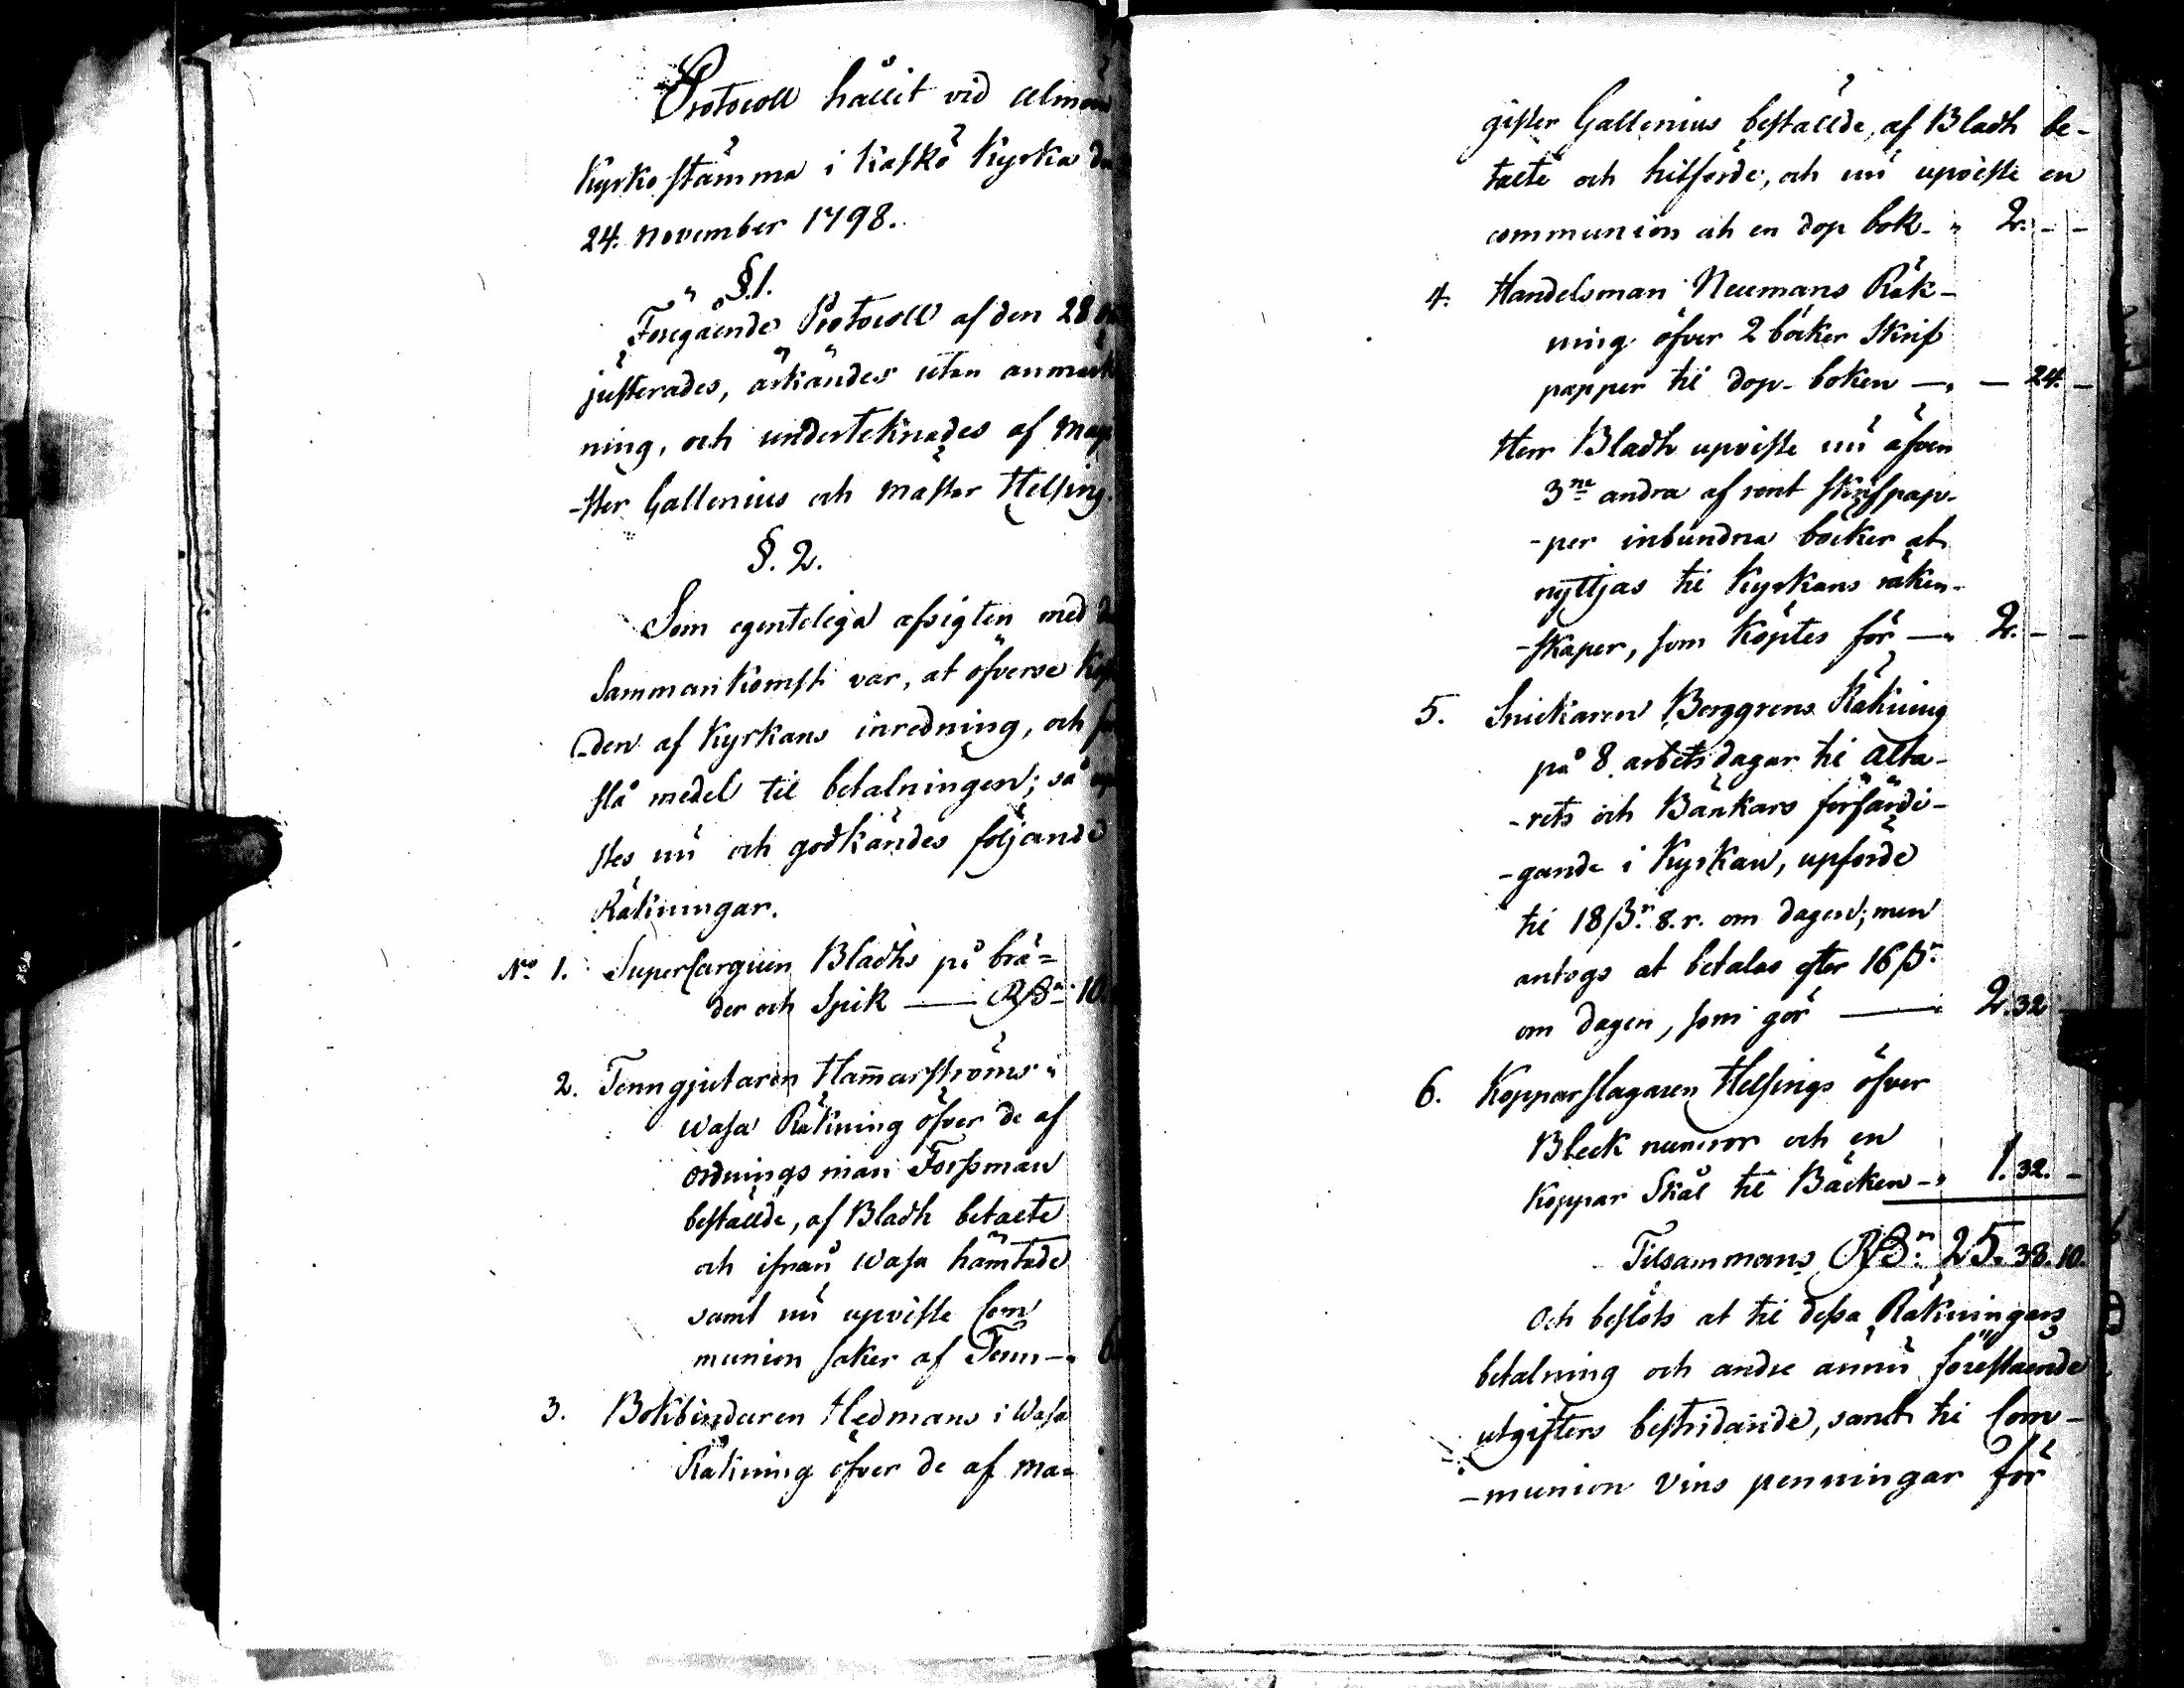 Protocoll hållit vid alman
Kyrkostämma i Kaskö Kyrka
24. November 1798.
§.1.
Föregående Protocoll af den 28
justerades, ärkändes utan anmärk
ning, och underteknades af Magi
-ster Gallenius och Mäster Helsing.
§. 2.
Som egenteliga afsigten med
Sammankomsten var, at öfverse
-den af Kyrkans inredning, och
slå medel til betalningen; så
stes nu och godkändes följande
Räkningar.
No 1. Supercarguen Bladhs på brä=
der och Spik — Rßr 10
2. Tenngjutaren Hammarströms i
Wasa Räkning öfver de af
ordningsman Forssman
bestälde, af Bladh betalte
och ifrån Wasa hämtade
samt nu upviste Com
munion saker af Tenn — 6
3. Bokbindaren Hedmans i Wasa
Räkning öfver de af Ma=
gister Gallenius bestälde, af Bladh be-
talte och hitförde, och nu upviste en
communion och en dop bok - " 2. - -
4. Handelsman Neumans Räk-
ning öfver 2 böcker Skrif
papper til dop-boken — " — 24. -
Herr Bladh upviste nu äfven
3ne andra af rent skrifpap-
-per inbundna böcker at
nyttjas til Kyrkans räken-
-skaper, som köptes för — " 2. - -
5. Snickaren Berggrens Räkning
på 8 arbetsdagar til Alta-
-rets och Bänkars förfärdi-
-gande i Kyrkan, upförde
til 18 ßr. 8. r. om dagen; men
antogs at betalas efter 16 ßr
om dagen, som gör — 2. 32 -
6. Kopparslagaren Helsings öfver
Bleck numror och en
Koppar Skål til Bäcken - " 1. 32. -
Tilsammans Rßr. 25. 38. 10.
Och beslöts at til dessa Räkningars
betalning och andre ännu förestående
utgifters bestridande, samt til Com-
-munion vins penningar för